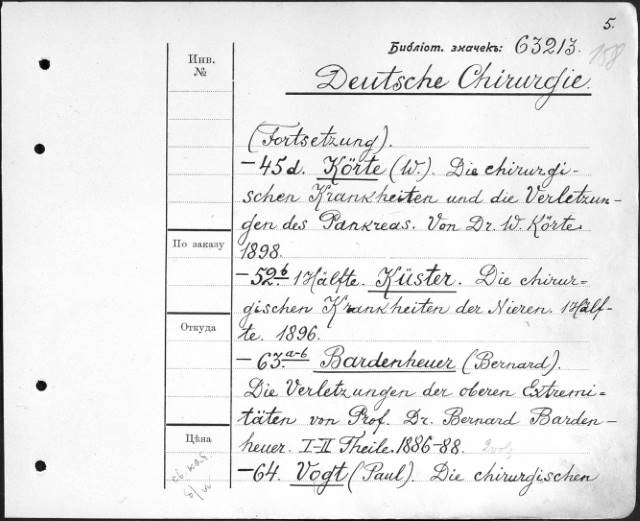 5.
Библіот. значекъ: 63213.
158
Инв.
№
Deutsche Chirurgie.
(Fortsetzung).
— 45 d. Körte (W.). Die chirurgi-
schen Krankheiten und die Verletzun-
gen des Pankreas. Von Dr. W. Körte.
1898.
По заказу
— 52.b 1 Hälfte. Küster. Die chirur=
gischen Krankheiten der Nieren. 1 Hälf-
te. 1896.
Откуда
— 63.a-b Bardenheuer (Bernard).
Die Verletzungen der oberen Extremi-
täten von Prof. Dr. Bernard Barden-
heuer. I-II Theile. 1886-88.
Цѣна
— 64. Vogt (Paul). Die chirurgischen